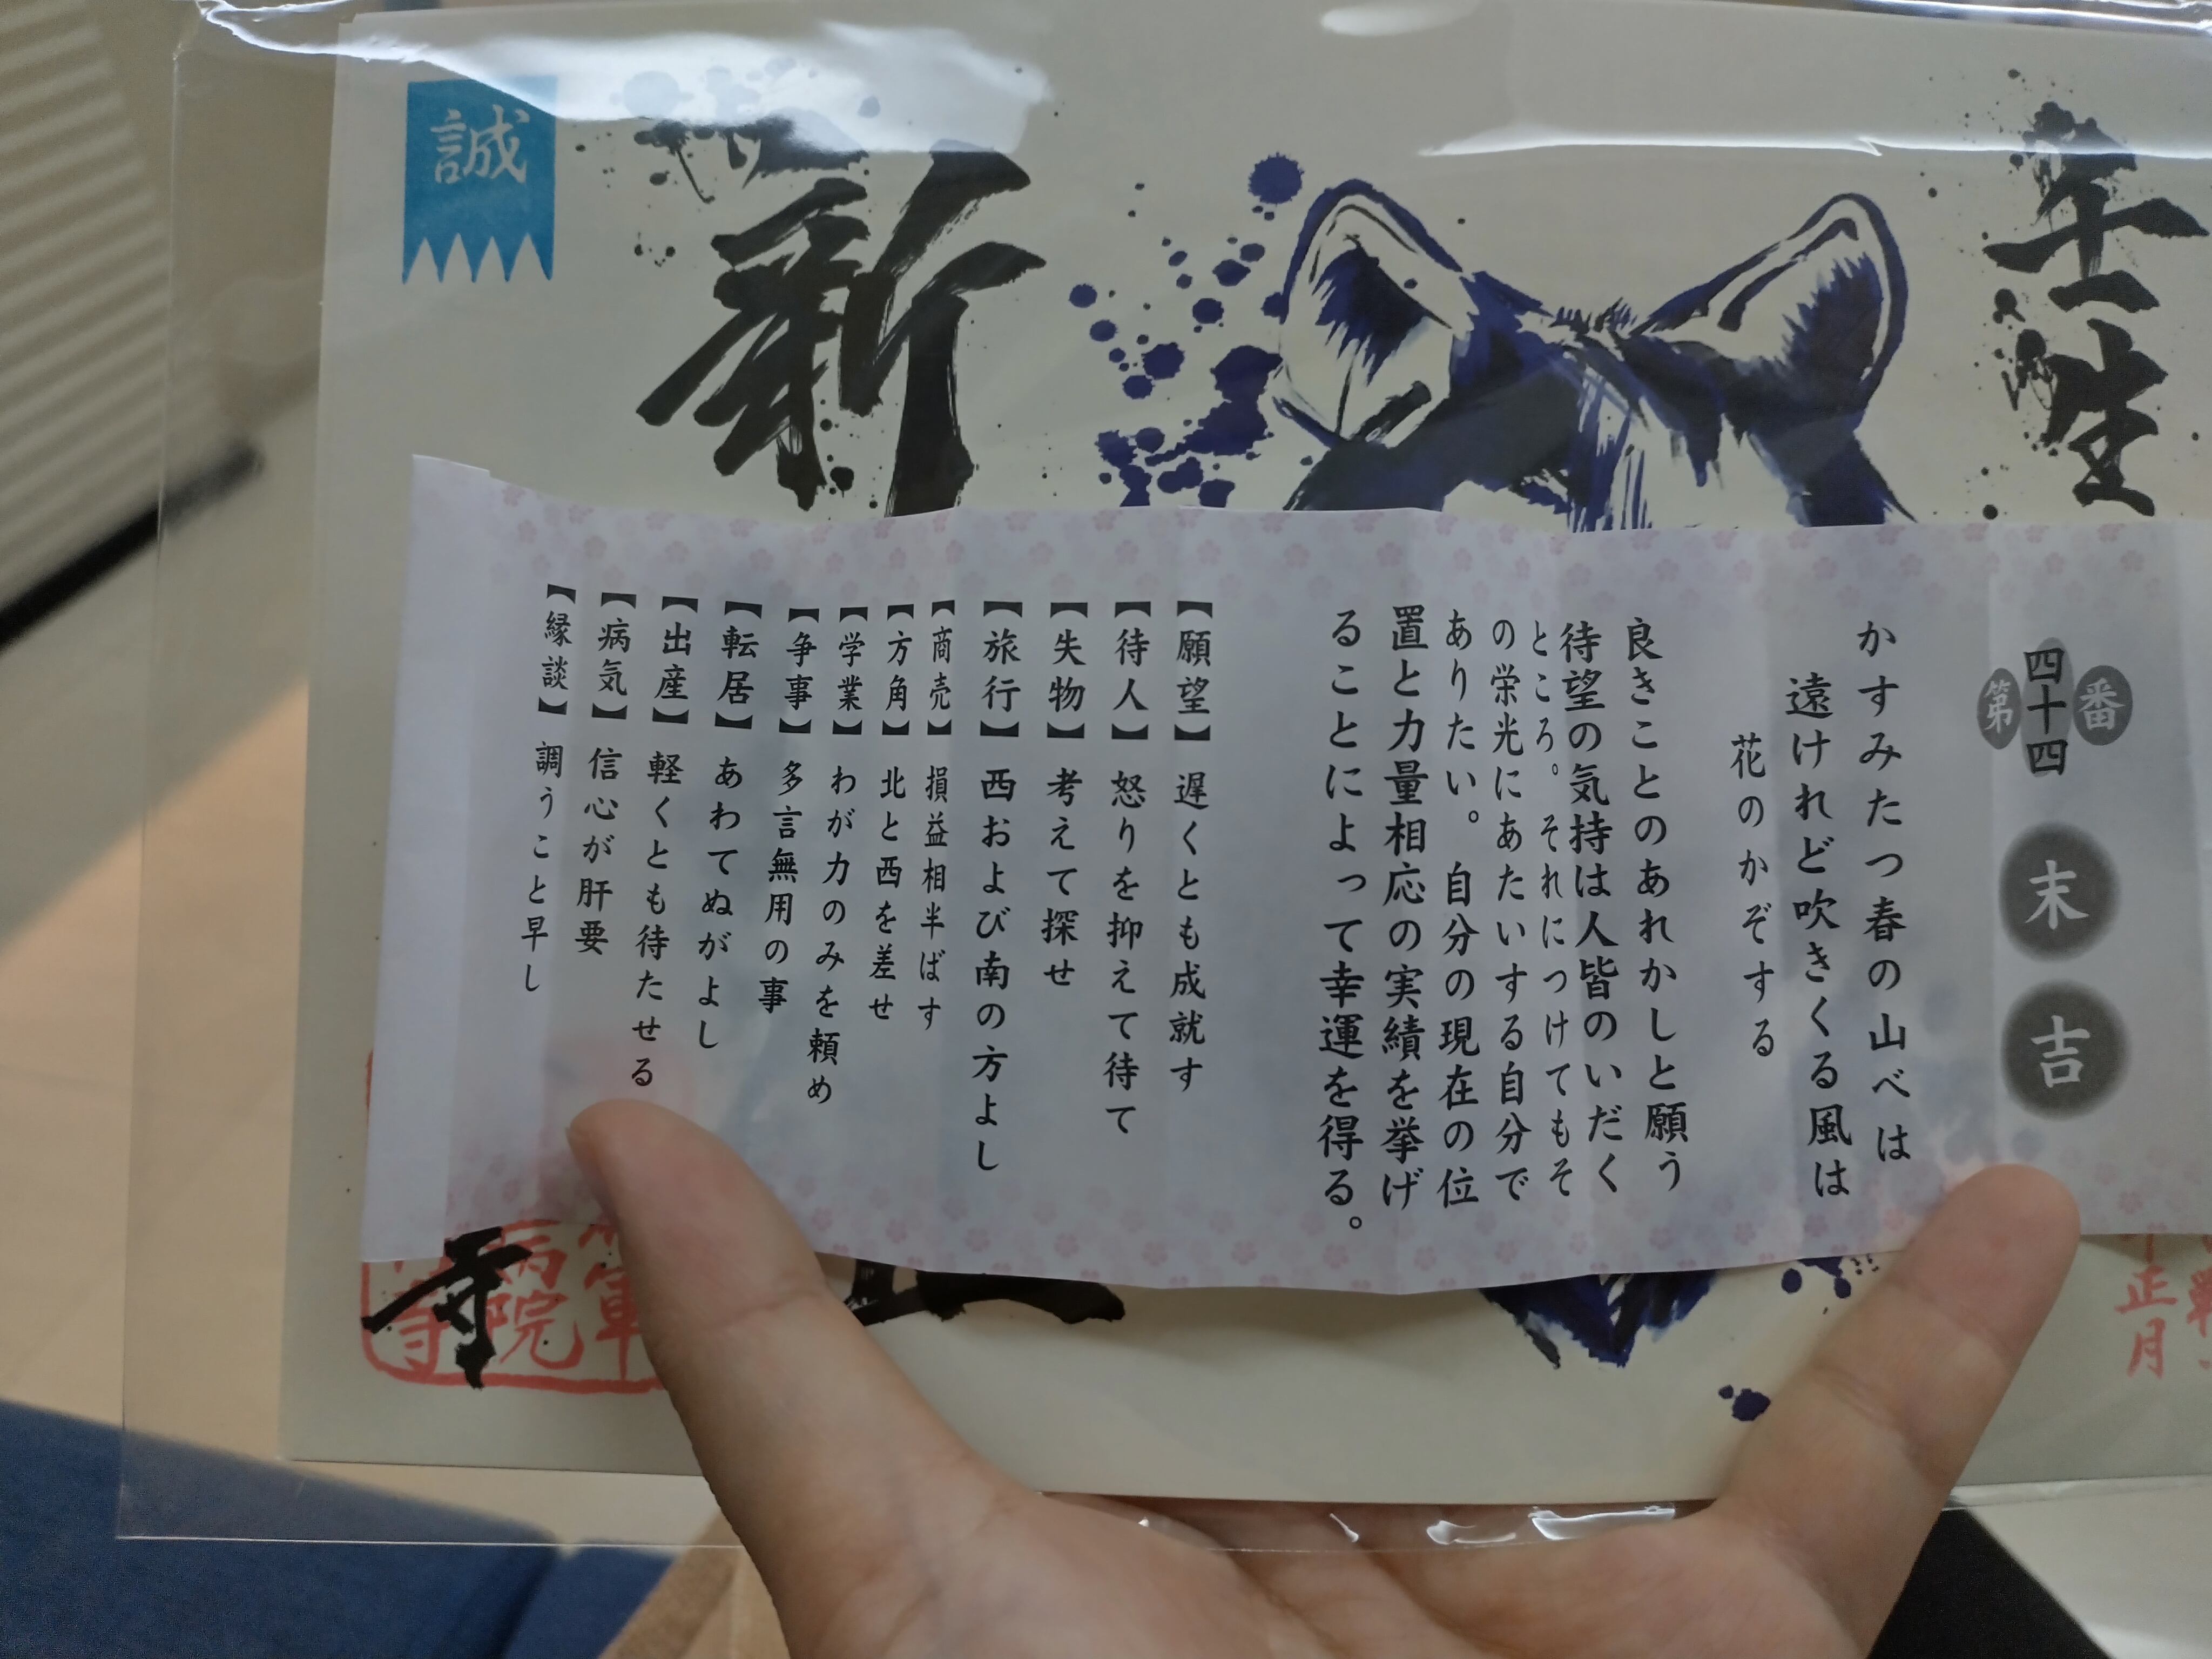 誠
新
壬生
第四十四番
末吉
かすみたつ春の山べは
遠けれど吹きくる風は
花のかぞする
良きことのあれかしと願う
待望の気持は人皆のいだく
ところ。それにつけてもそ
の栄光にあたいする自分で
ありたい。自分の現在の位
置と力量相応の実績を挙げ
ることによって幸運を得る。
【願望】遅くとも成就す
【待人】怒りを抑えて待て
【失物】考えて探せ
【旅行】西および南の方よし
【商売】損益相半ばす
【方角】北と西を差せ
【学業】わが力のみを頼め
【争事】多言無用の事
【転居】あわてぬがよし
【出産】軽くとも待たせる
【病気】信心が肝要
【縁談】調うこと早し
正月
寺
病院
寺